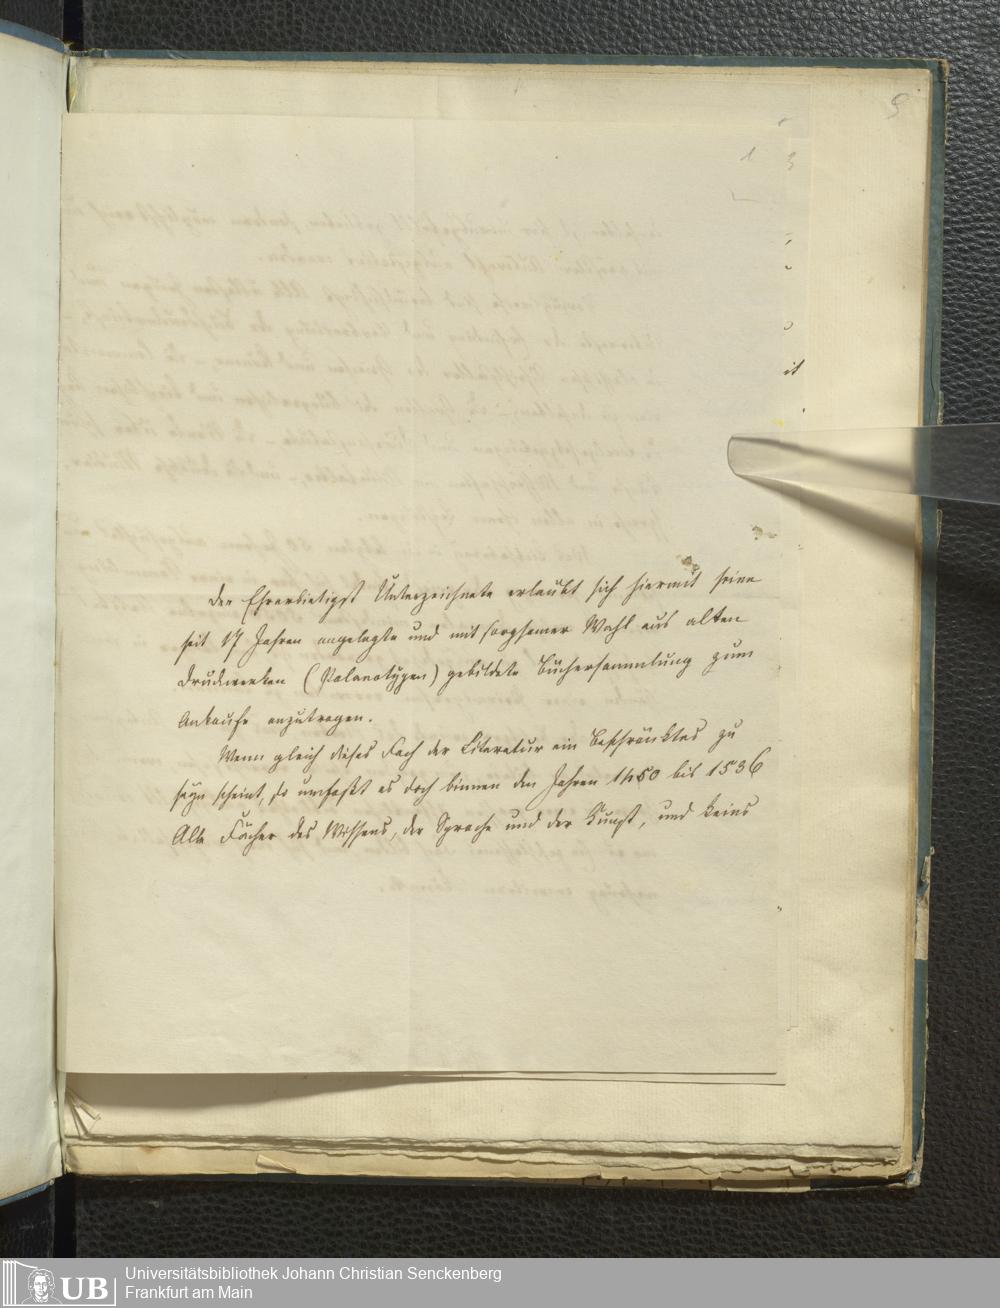 5
1 3
it
Der Ehrerbietigst Unterzeichnete erlaubt sich hiermit seine
seit 17 Jahren angelegte und mit sorgsamer Wahl aus alten
Druckwerken (Palaeotypen) gebildete Büchersammlung zum
Ankaufe anzutragen.
Wenn gleich dieses Fach der Literatur ein Beschränktes zu
seyn scheint, so umfaßt es doch binnen den Jahren 1450 bis 1536
Alle Fächer des Wissens, der Sprache und der Kunst, und keins
UB
Universitätsbibliothek Johann Christian Senckenberg
Frankfurt am Main